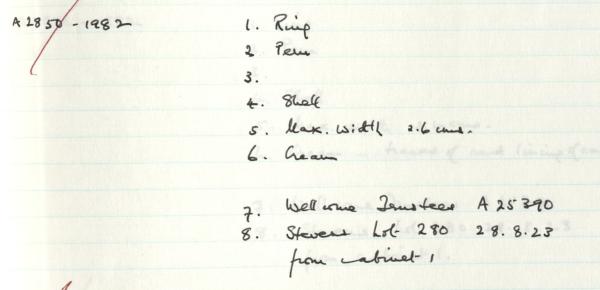 A2850-1982 1. Ring
2 Peru
3.
4. Shell
5. Max. width 2.6 cms.
6. Cream
7. Wellcome Trustees A 25390
8. Stevens Lot 280 28.8.23
from cabinet 1